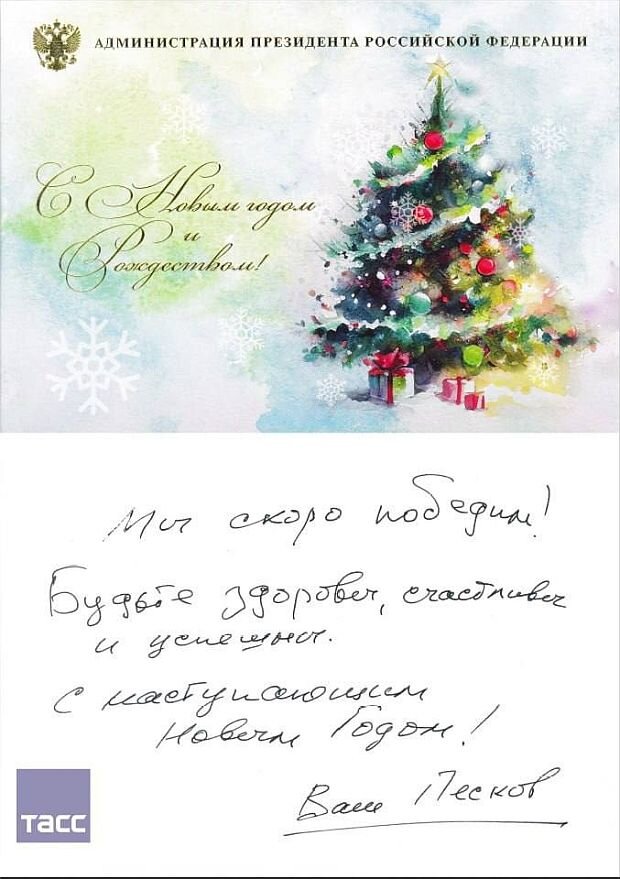 АДМИНИСТРАЦИЯ ПРЕЗИДЕНТА РОССИЙСКОЙ ФЕДЕРАЦИИ
С Новым годом
и
Рождеством!
Мы скоро победим!
Будьте здоровы, счастливы
и успешны.
С наступающим
Новым Годом!
Ваш Песков
ТАСС